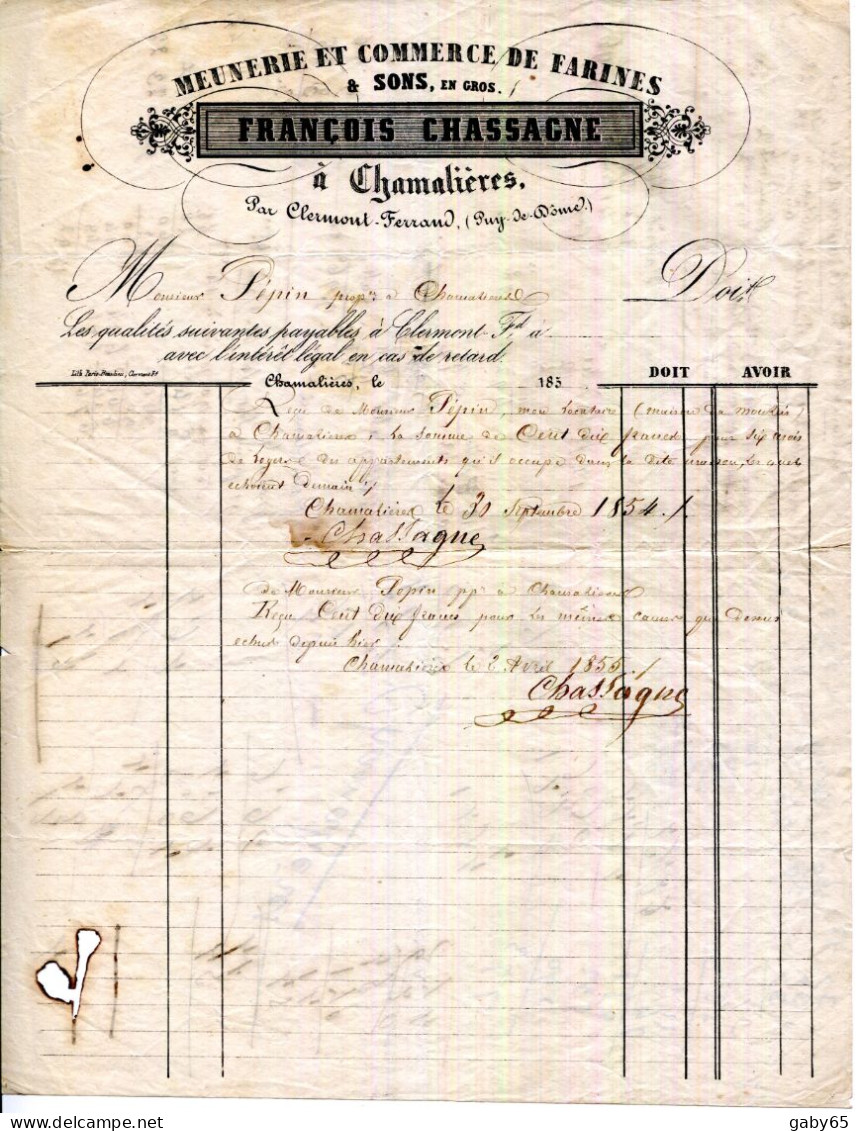 MEUNERIE ET COMMERCE DE FARINES
& SONS, EN GROS.
FRANÇOIS CHASSAGNE
à Chamalières,
Par Clermont-Ferrand, (Puy-de-Dôme.)
Monsieur Pépin propre à Chamalières Doit
Les qualités suivantes payables à Clermont-Fd a
avec l'intérêt légal en cas de retard.
DOIT AVOIR
Chamalières, le 185
Reçu de Monsieur Pépin, mon locataire (maison du moulin)
à Chamalières, la somme de Cent dix francs pour six mois
de loyers des appartements qu'il occupe dans la dite maison, lesquels
echoient demain
Chamalières le 30 Septembre 1854
Chassagne
de Monsieur Pepin pp à Chamalieres
Reçu Cent dix francs pour les mêmes causes que dessus
echus depuis hier
Chamalieres le 2 Avril 1855
Chassagne
gaby65